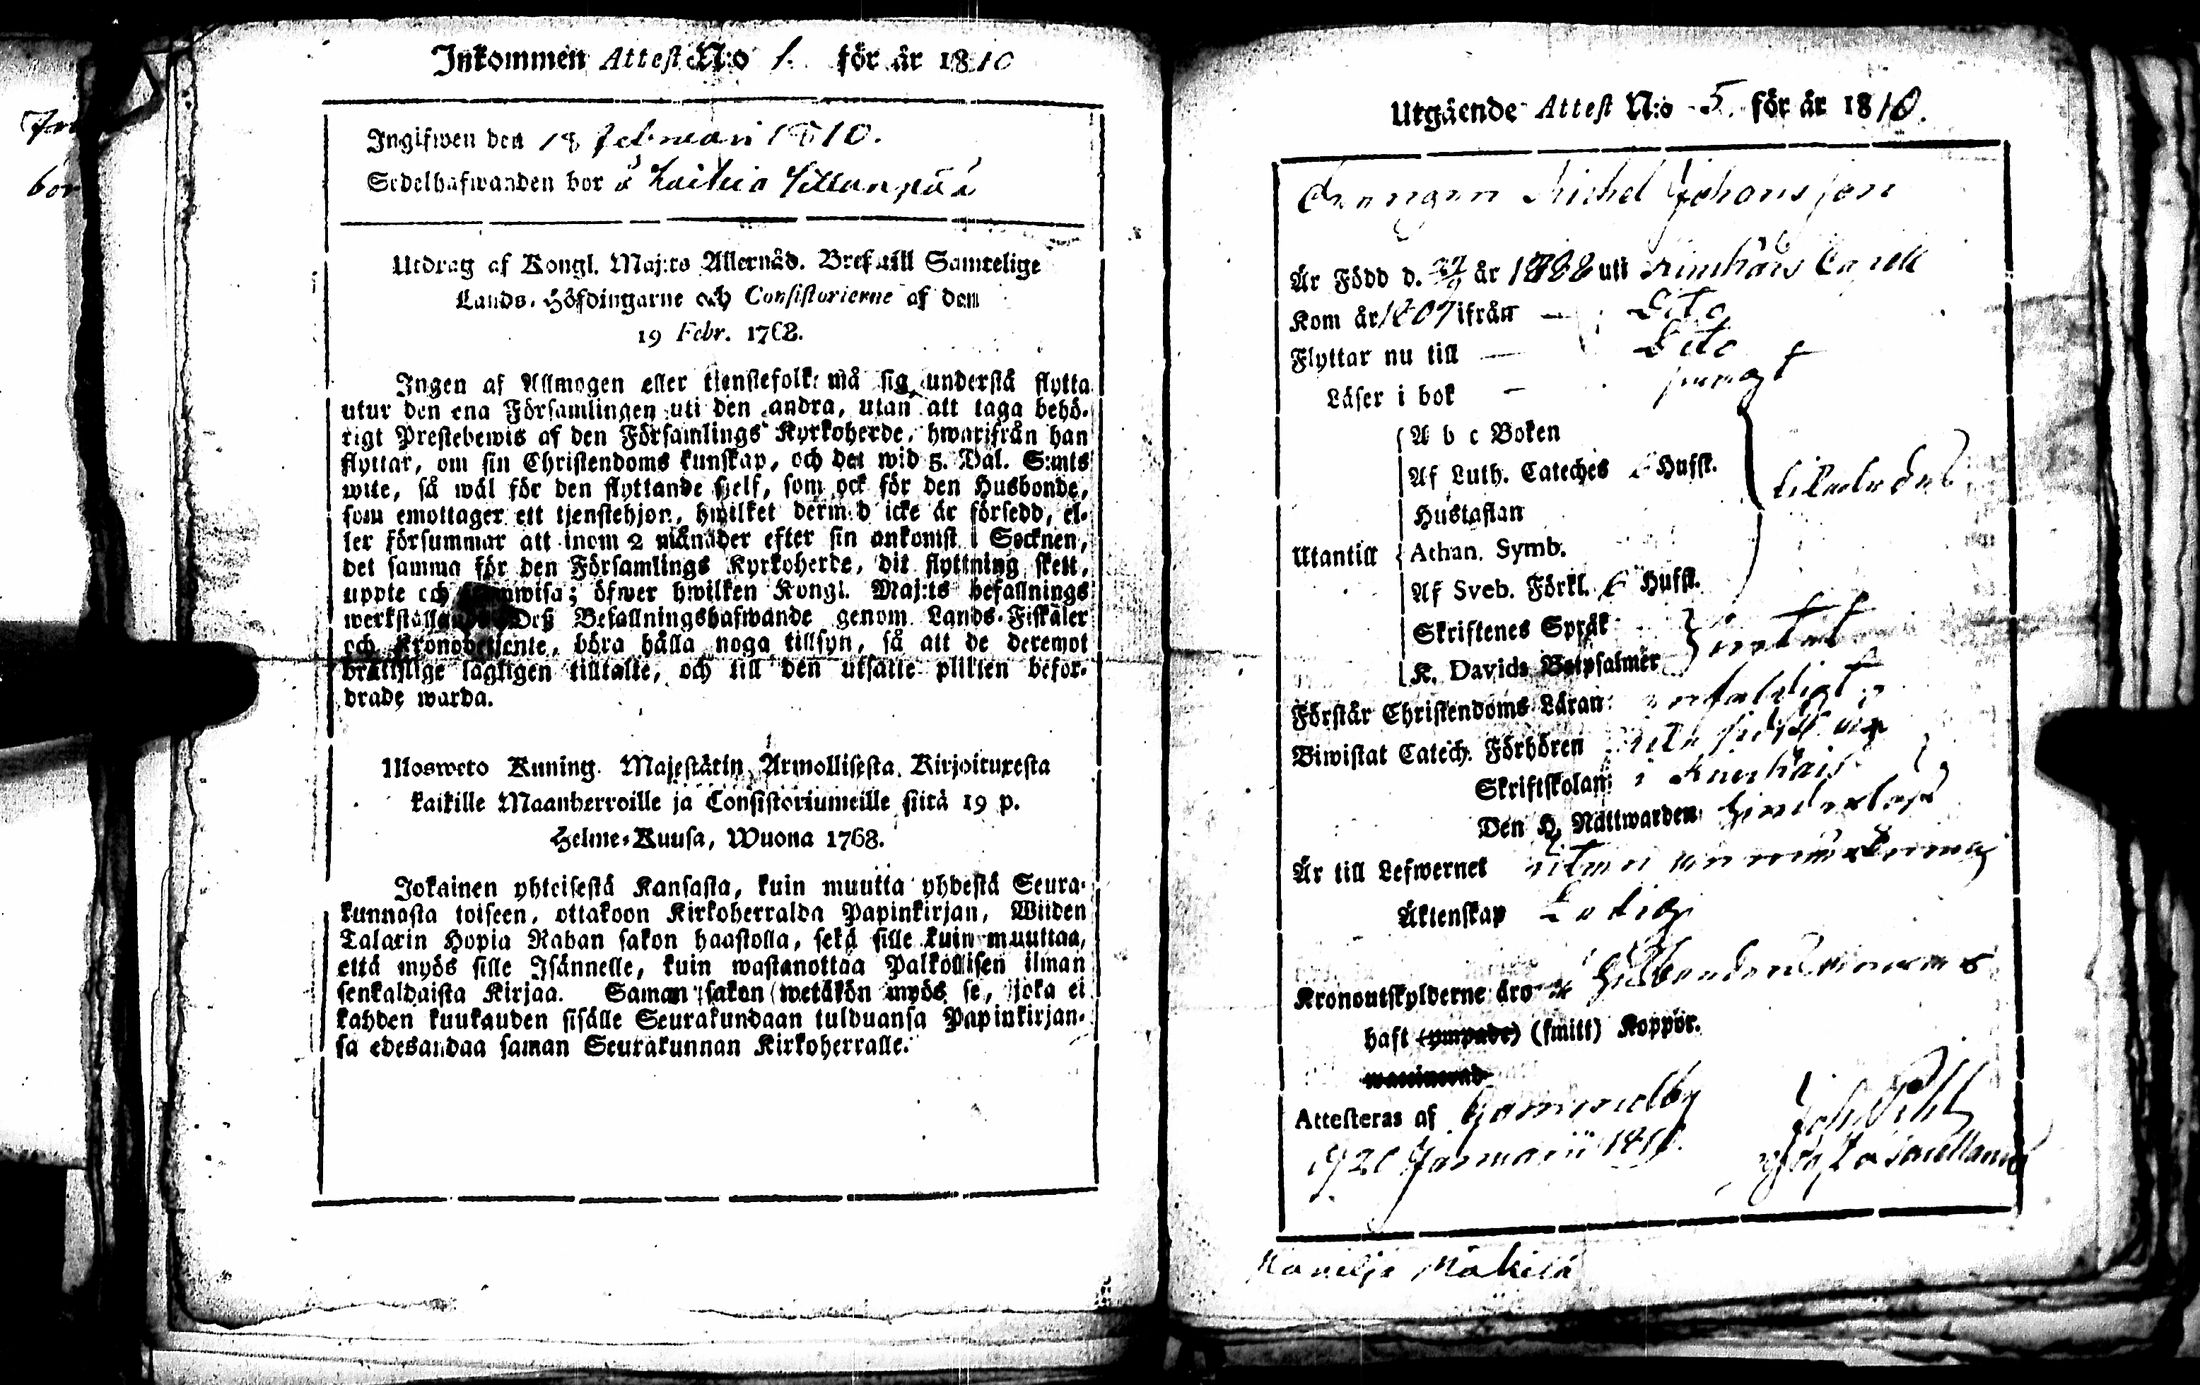 Inkommen Attest N:o 1. för år 1810
Ingifwen den 18 februari 1810.
Sedelhafwanden bor å
Utdrag af Kongl. Maj:ts Allernåd. Bref till Samtelige
Lands-Höfdingarne och Consistorierne af dem
19 Febr. 1768.
Ingen af Allmogen eller tjenstefolk må sig understå flytta
utur den ena Församlingen uti den andra, utan att taga behö-
rigt Prestebewis af den Församlings Kyrkoherde, hwarifrån han
flyttar, om sin Christendoms kunskap, och det wid 5. Dal. S:mts
wite, så wäl för den flyttande sjelf, som ock för den Husbonde,
som emottager ett tjenstehjon, hwilket dermed icke är försedd, el-
ler försummar att inom 2 månader efter sin ankomst i Socknen,
det samma för den Församlings Kyrkoherde, dit flyttning skett,
uppte och wisa; öfwer hwilken Kongl. Maj:ts befallnings
werkställande Deß Befallningshafwande genom Lands-Fiskäler
och Kronobetjente, böra hålla noga tillsyn, så att de deremot
bråttslige lagligen tilltalte, och till den utsatte plikten beför-
drade warda.
Ulosweto Kuning. Majestätin Armollisesta Kirjoituxesta
kaikille Maanherroille ja Consistoriumeille siitä 19 p.
Helme-Kuusa, Wuona 1768.
Jokainen yhteisestä Kansasta, kuin muutta yhdestä Seura-
kunnasta toiseen, ottakoon Kirkoherralda Papinkirjan, Wiiden
Talarin Hopia Rahan sakon haastolla, sekä sille kuin muuttaa,
että myös sille Isännelle, kuin wastanottaa Palkollisen ilman
senkaldaista Kirjaa. Saman sakon wetäkön myös se, joka ei
kahden kuukauden sisälle Seurakundaan tulduansa Papinkirjan-
sa edesandaa saman Seurakunnan Kirkoherralle.
Utgående Attest N:o 5. för år 1810.
Drängen Michel Johansson
Är Född d. 27/9 år 1788 uti Kapell
Kom år 1809 ifrån — Dito
Flyttar nu till — Dito
Läser i bok —
A b c Boken
Af Luth. Cateches 6 Hufst.
Hustaflan
Utantill Athan. Symb.
Af Sveb. Förkl. 6 Hufst.
Skriftenes Språk
K. Davids Botpsalmer
Förstår Christendoms Läran enfaldigt
Biwistat Catech. Förhören
Skriftskolan i
Den H. Nattwarden
Är till Lefwernet utan anmärkning
Äktenskap Ledig
Kronoutskylderne äro
haft (ympade) (smitt) Koppor.
waccinerad
Attesteras af Gammelby
d 20 Januarii 1810.
Joh. Pihl
Makilä